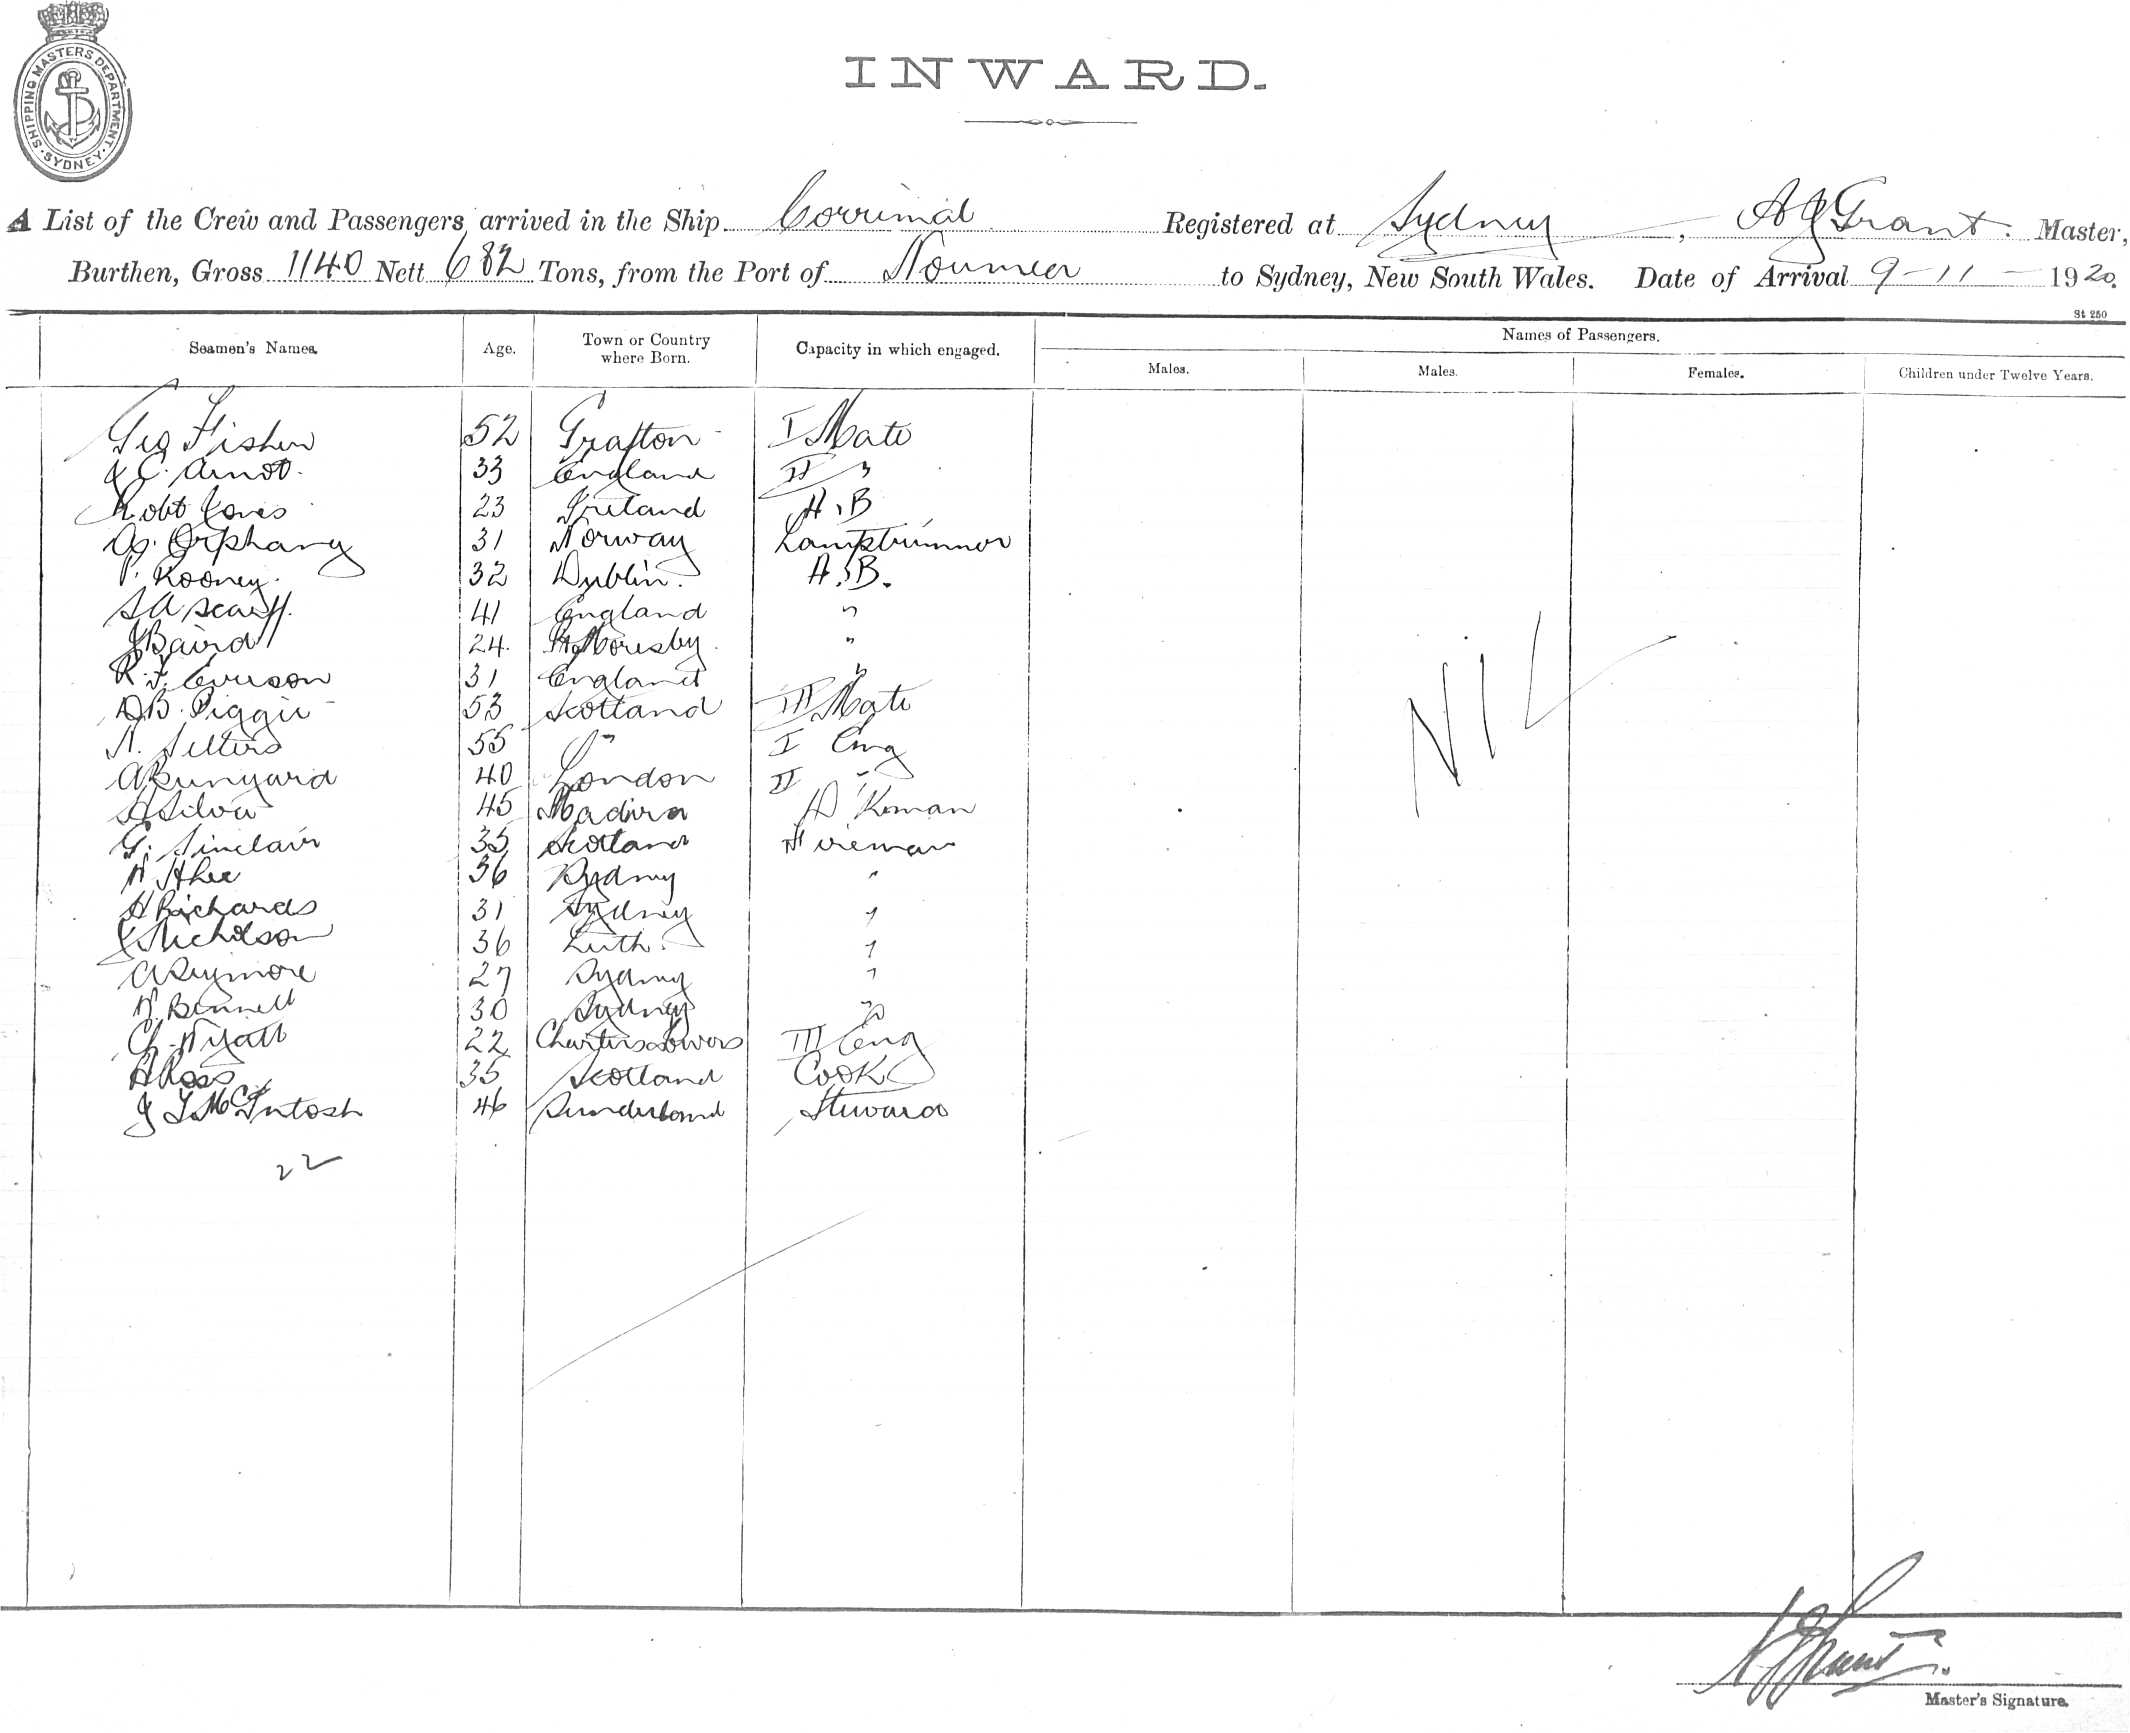 SHIPPING MASTERS DEPARTMENT. SYDNEY.
INWARD.
A List of the Crew and Passengers arrived in the Ship Corrimal Registered at Sydney, A J Grant. Master,
Burthen, Gross 1140 Nett 682 Tons, from the Port of Noumea to Sydney, New South Wales. Date of Arrival 9-11-1920.
St 250
Seamen's Names. Age. Town or Country where Born. Capacity in which engaged. Names of Passengers.
Males. Males. Females. Children under Twelve Years.
Geo Fisher 52 Grafton I Mate
J C. Arnot. 33 England II "
Robt Jones 23 Ireland A.B
Orphang 31 Norway Lamptrimmer
P. Rooney. 32 Dublin. A.B.
41 England "
J Baird 24. Pt Moresby. "
R. F. 31 England "
D B. 53 Scotland III Mate
55 " I Eng
40 London II "
A Silva 45 Madira D'Keman
G. Sinclair 35 Scotland Fireman
36 Sydney "
H Richards 31 Sydney "
J Nicholson 36 Leith. "
27 Sydney "
W. Bennett 30 Sydney "
Ch. Wyatt 22 Charters Towers III Eng
A Ross 35 Scotland Cook
J T McIntosh 46 Sunderland Steward
22
NIL
A J Grant.
Master's Signature.